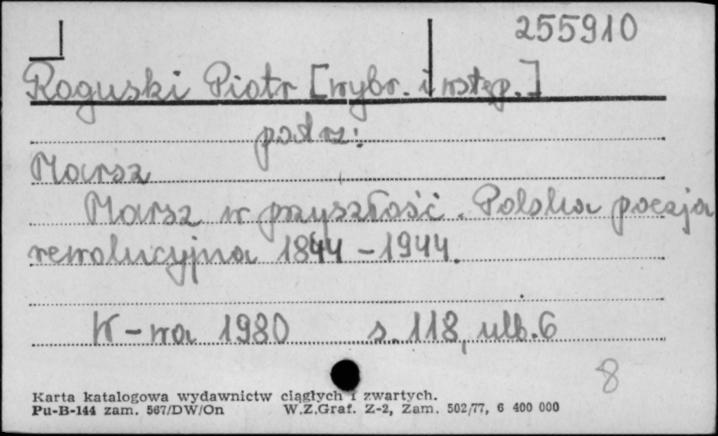 255910
Roguski Piotr [wybr. i wstęp.]
podrz:
Marsz
Marsz w przyszłość. Polska poezja
rewolucyjna 1844 - 1944.
W-wa 1980 s. 118, ulb. 6
8
Karta katalogowa wydawnictw ciągłych i zwartych.
Pu-B-144 zam. 567/DW/On W.Z.Graf. Z-2, Zam. 502/77, 6 400 000